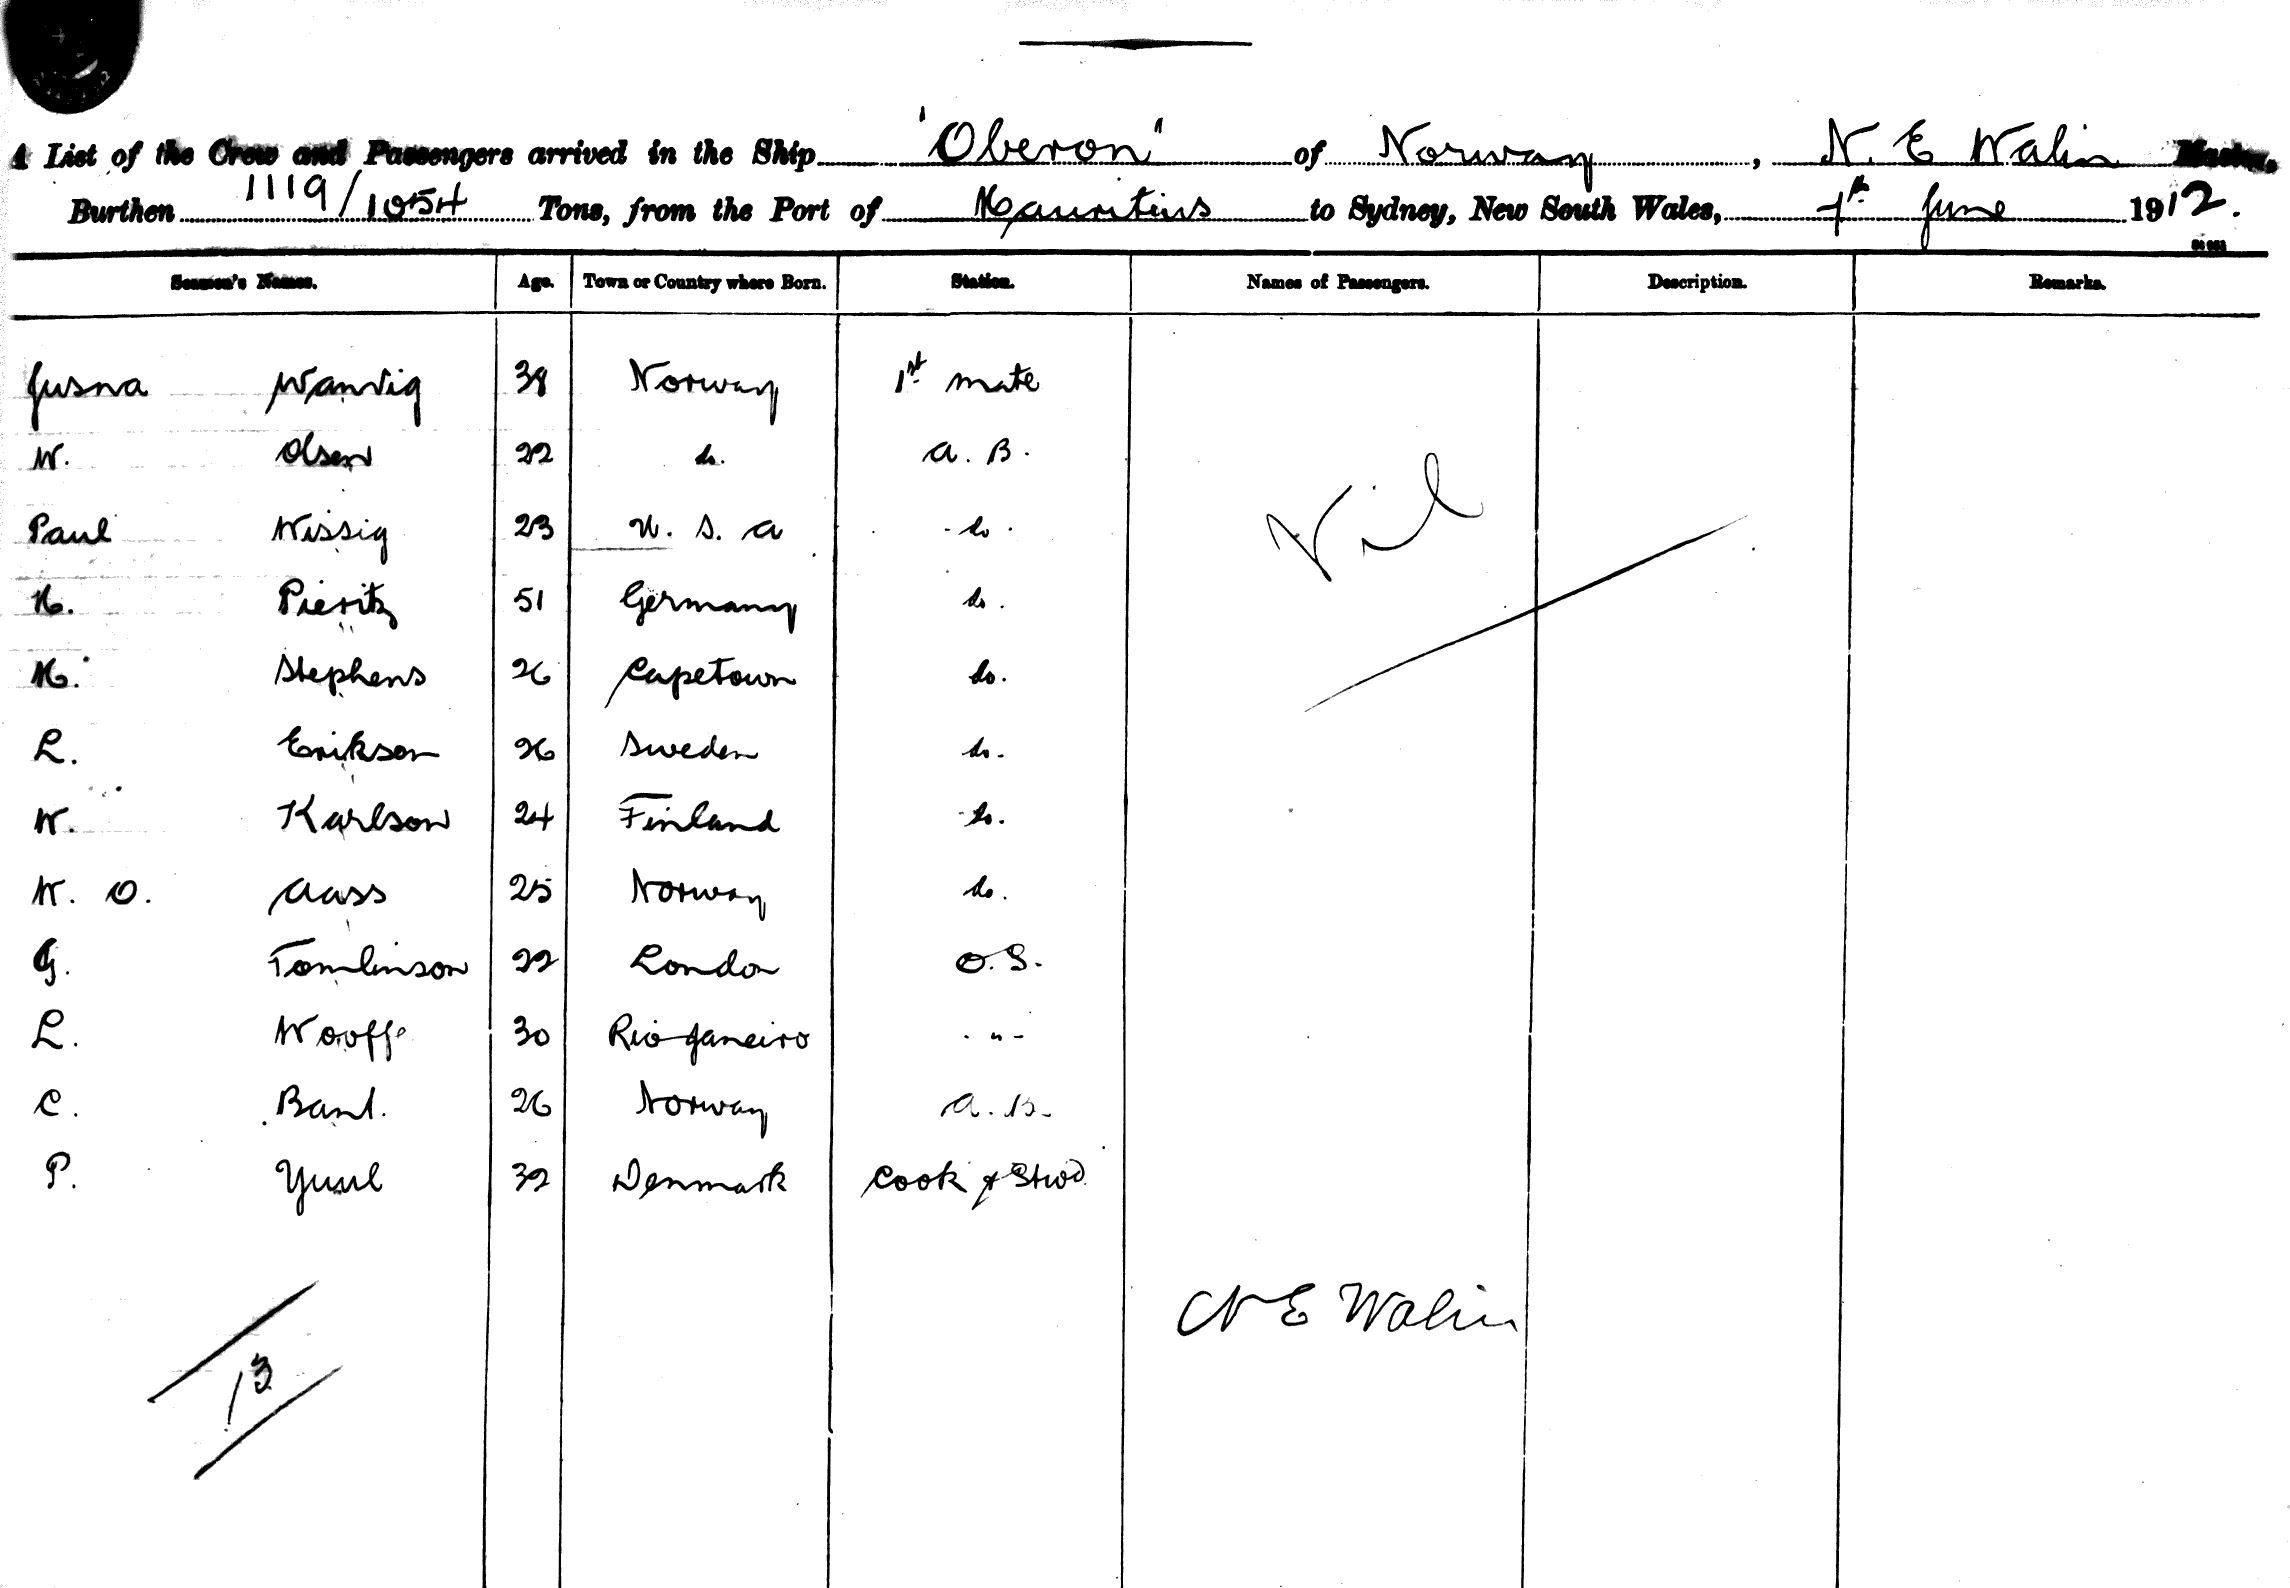 A List of the Crew and Passengers arrived in the Ship 'Oberon' of Norway, N. E Walin Master,
Burthen 1119/1054 Tons, from the Port of Mauritius to Sydney, New South Wales, 7th June 1912.
Seamen's Names. Age. Town or Country where Born. Station. Names of Passengers. Description. Remarks.
Wanvig 38 Norway 1st mate
W. Olsen 22 do. A. B.
Paul Wissig 23 U. S. A do.
H. Pieritz 51 Germany do.
Stephens 26 Capetown do.
L. Erikson 26 Sweden do.
W. Karlson 24 Finland do.
W. O. Aass 25 Norway do.
G. Tomlinson 22 London O. S.
L. 30 Rio Janeiro - " -
C. 26 Norway A. B.
P. Yuul 32 Denmark Cook & Stwd
Nil
N E Walin
13